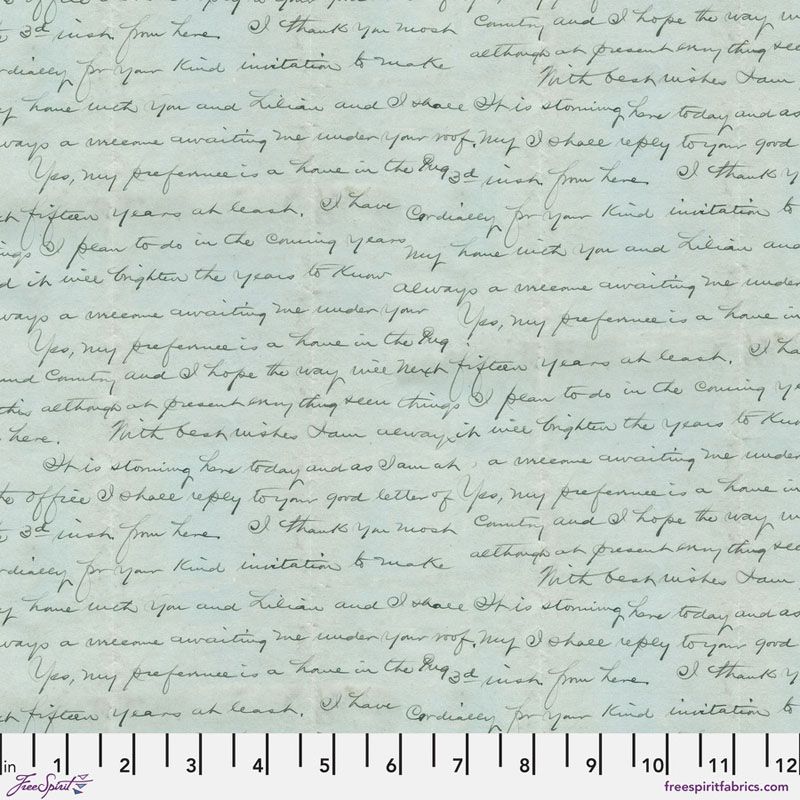 the office I shall reply to your good letter of Country and I hope the way w
e 3d inst from here. I thank you most although at present everything see
rdially for your kind invitation to make With best wishes I am
y home with you and Lilian and I shall It is storming here today and as
ways a welcome awaiting me under your roof. My I shall reply to your good
Yes, my preference is a home in the Pug 3d inst from here. I thank y
xt fifteen years at least. I have Cordially for your kind invitation to
ings I plan to do in the coming years my home with you and Lilian and
d it will brighten the years to know always a welcome awaiting me under
ways a welcome awaiting me under your Yes, my preference is a home in
Yes, my preference is a home in the Pug
und Country and I hope the way will next fifteen years at least. I ha
this although at present everything seen things I plan to do in the coming ye
here. With best wishes I am always it will brighten the years to know
It is storming here today and as I am at a welcome awaiting me under
the office I shall reply to your good letter of Yes, my preference is a home in
e 3d inst from here. I thank you most Country and I hope the way w
rdially for your kind invitation to make although at present everything see
With best wishes I am
y home with you and Lilian and I shall It is storming here today and as
ways a welcome awaiting me under your roof. My I shall reply to your good
Yes, my preference is a home in the Pug 3d inst from here. I thank y
xt fifteen years at least. I have Cordially for your kind invitation to
in 1 2 3 4 5 6 7 8 9 10 11 12
FreeSpirit
freespiritfabrics.com